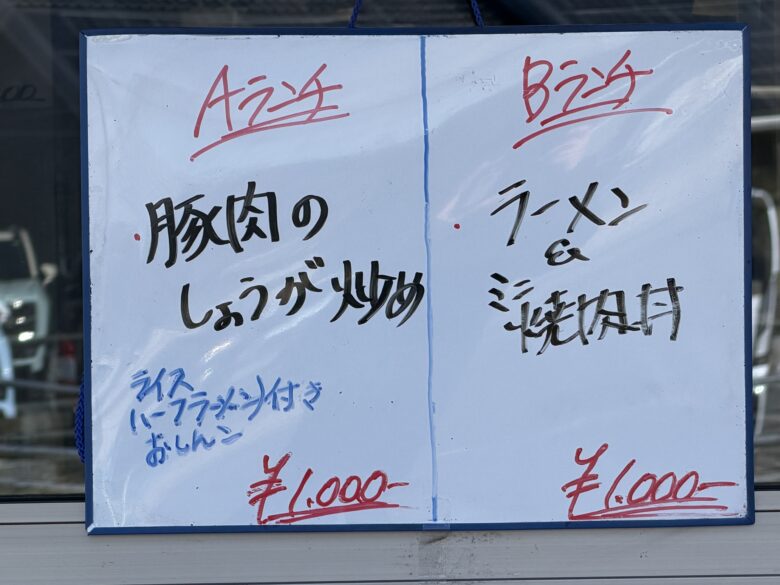 Aランチ
・豚肉の
しょうが炒め
ライス
ハーフラーメン付き
おしんこ
¥1.000-
Bランチ
・ラーメン
&
ミニ焼肉丼
¥1.000-